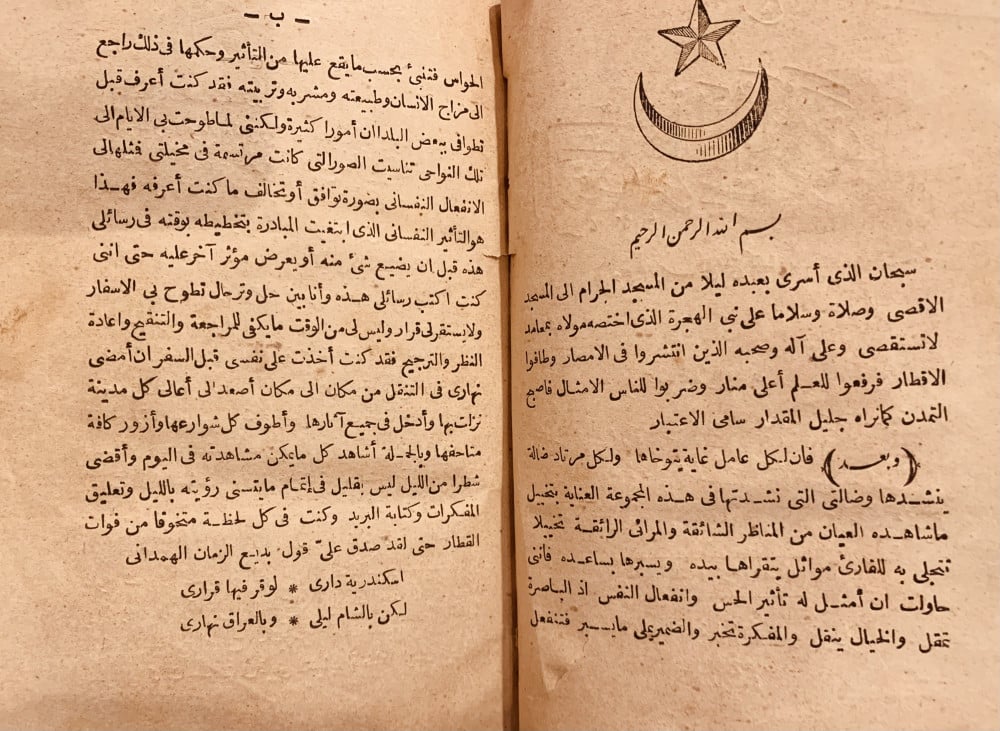 بسم الله الرحمن الرحيم
سبحان الذى أسرى بعبده ليلا من المسجد الحرام الى المسجد
الاقصى وصلاة وسلاما على نبي الهجرة الذى اختصه مولاه بمعامد
لاتستقصى وعلى آله وصحبه الذين انتشروا فى الامصار وطافوا
الاقطار فرفعوا للعلم أعلى منار وضربوا للناس الامثال فاصبح
التمدن كمانراه جليل المقدار سامى الاعتبار
(وبعد) فان لكل عامل غاية يتوخاها ولكل مرتاد ضالة
ينشدها وضالتى التى نشدتها فى هذه المجموعة العناية بتخييل
ماشاهده العيان من المناظر الشائقة والمرائى الرائقة تخييلا
تتجلى به للقارئ موائل يتقراها بيده ويسبرها بساعده فاننى
حاولت ان أمثل له تأثير الحس وانفعال النفس اذ الباصرة
تمقل والخيال ينقل والمفكرة تخبر والضمير يملى مايسبر فتنفعل
- ب -
الحواس فتنبئ بحسب مايقع عليها من التأثير وحكمها فى ذلك راجع
الى مزاج الانسان وطبيعته ومشربه وتربيته فقد كنت أعرف قبل
تطوافى ببعض البلدان أمورا كثيرة ولكننى لما طوحت بى الايام الى
تلك النواحى تناسيت الصور التى كانت مرتسمة فى مخيلتى فثلها الى
الانفعال النفسانى بصورة توافق أو تخالف ما كنت أعرفه فهذا
هو التأثير النفسانى الذى ابتغيت المبادرة بتخطيطه بوقته فى رسائلى
هذه قبل ان يضيع شئ منه أو يعرض مؤثر آخر عليه حتى اننى
كنت اكتب رسائلى هذه وأنا بين حل وترحال تطوح بى الاسفار
ولا يستقر لى قرار وليس لى من الوقت مايكفى للمراجعة والتنقيح واعادة
النظر والترجيح فقد كنت أخذت على نفسى قبل السفر ان أمضى
نهارى فى التنقل من مكان الى مكان أصعد الى أعالى كل مدينة
نزلت بها وأدخل فى جميع آثارها وأطوف كل شوارعها وأزور كافة
متاحفها وبالجملة أشاهد كل مايمكن مشاهدته فى اليوم وأقضى
شطرا من الليل ليس بقليل فى اتمام مايتسنى رؤيته بالليل وتعليق
المفكرات وكتابة البريد وكنت فى كل لحظة متخوفا من فوات
القطار حتى لقد صدق علىّ قول بديع الزمان الهمدانى
اسكندرية دارى * لوقر فيها قرارى
لكن بالشام ليلى * وبالعراق نهارى